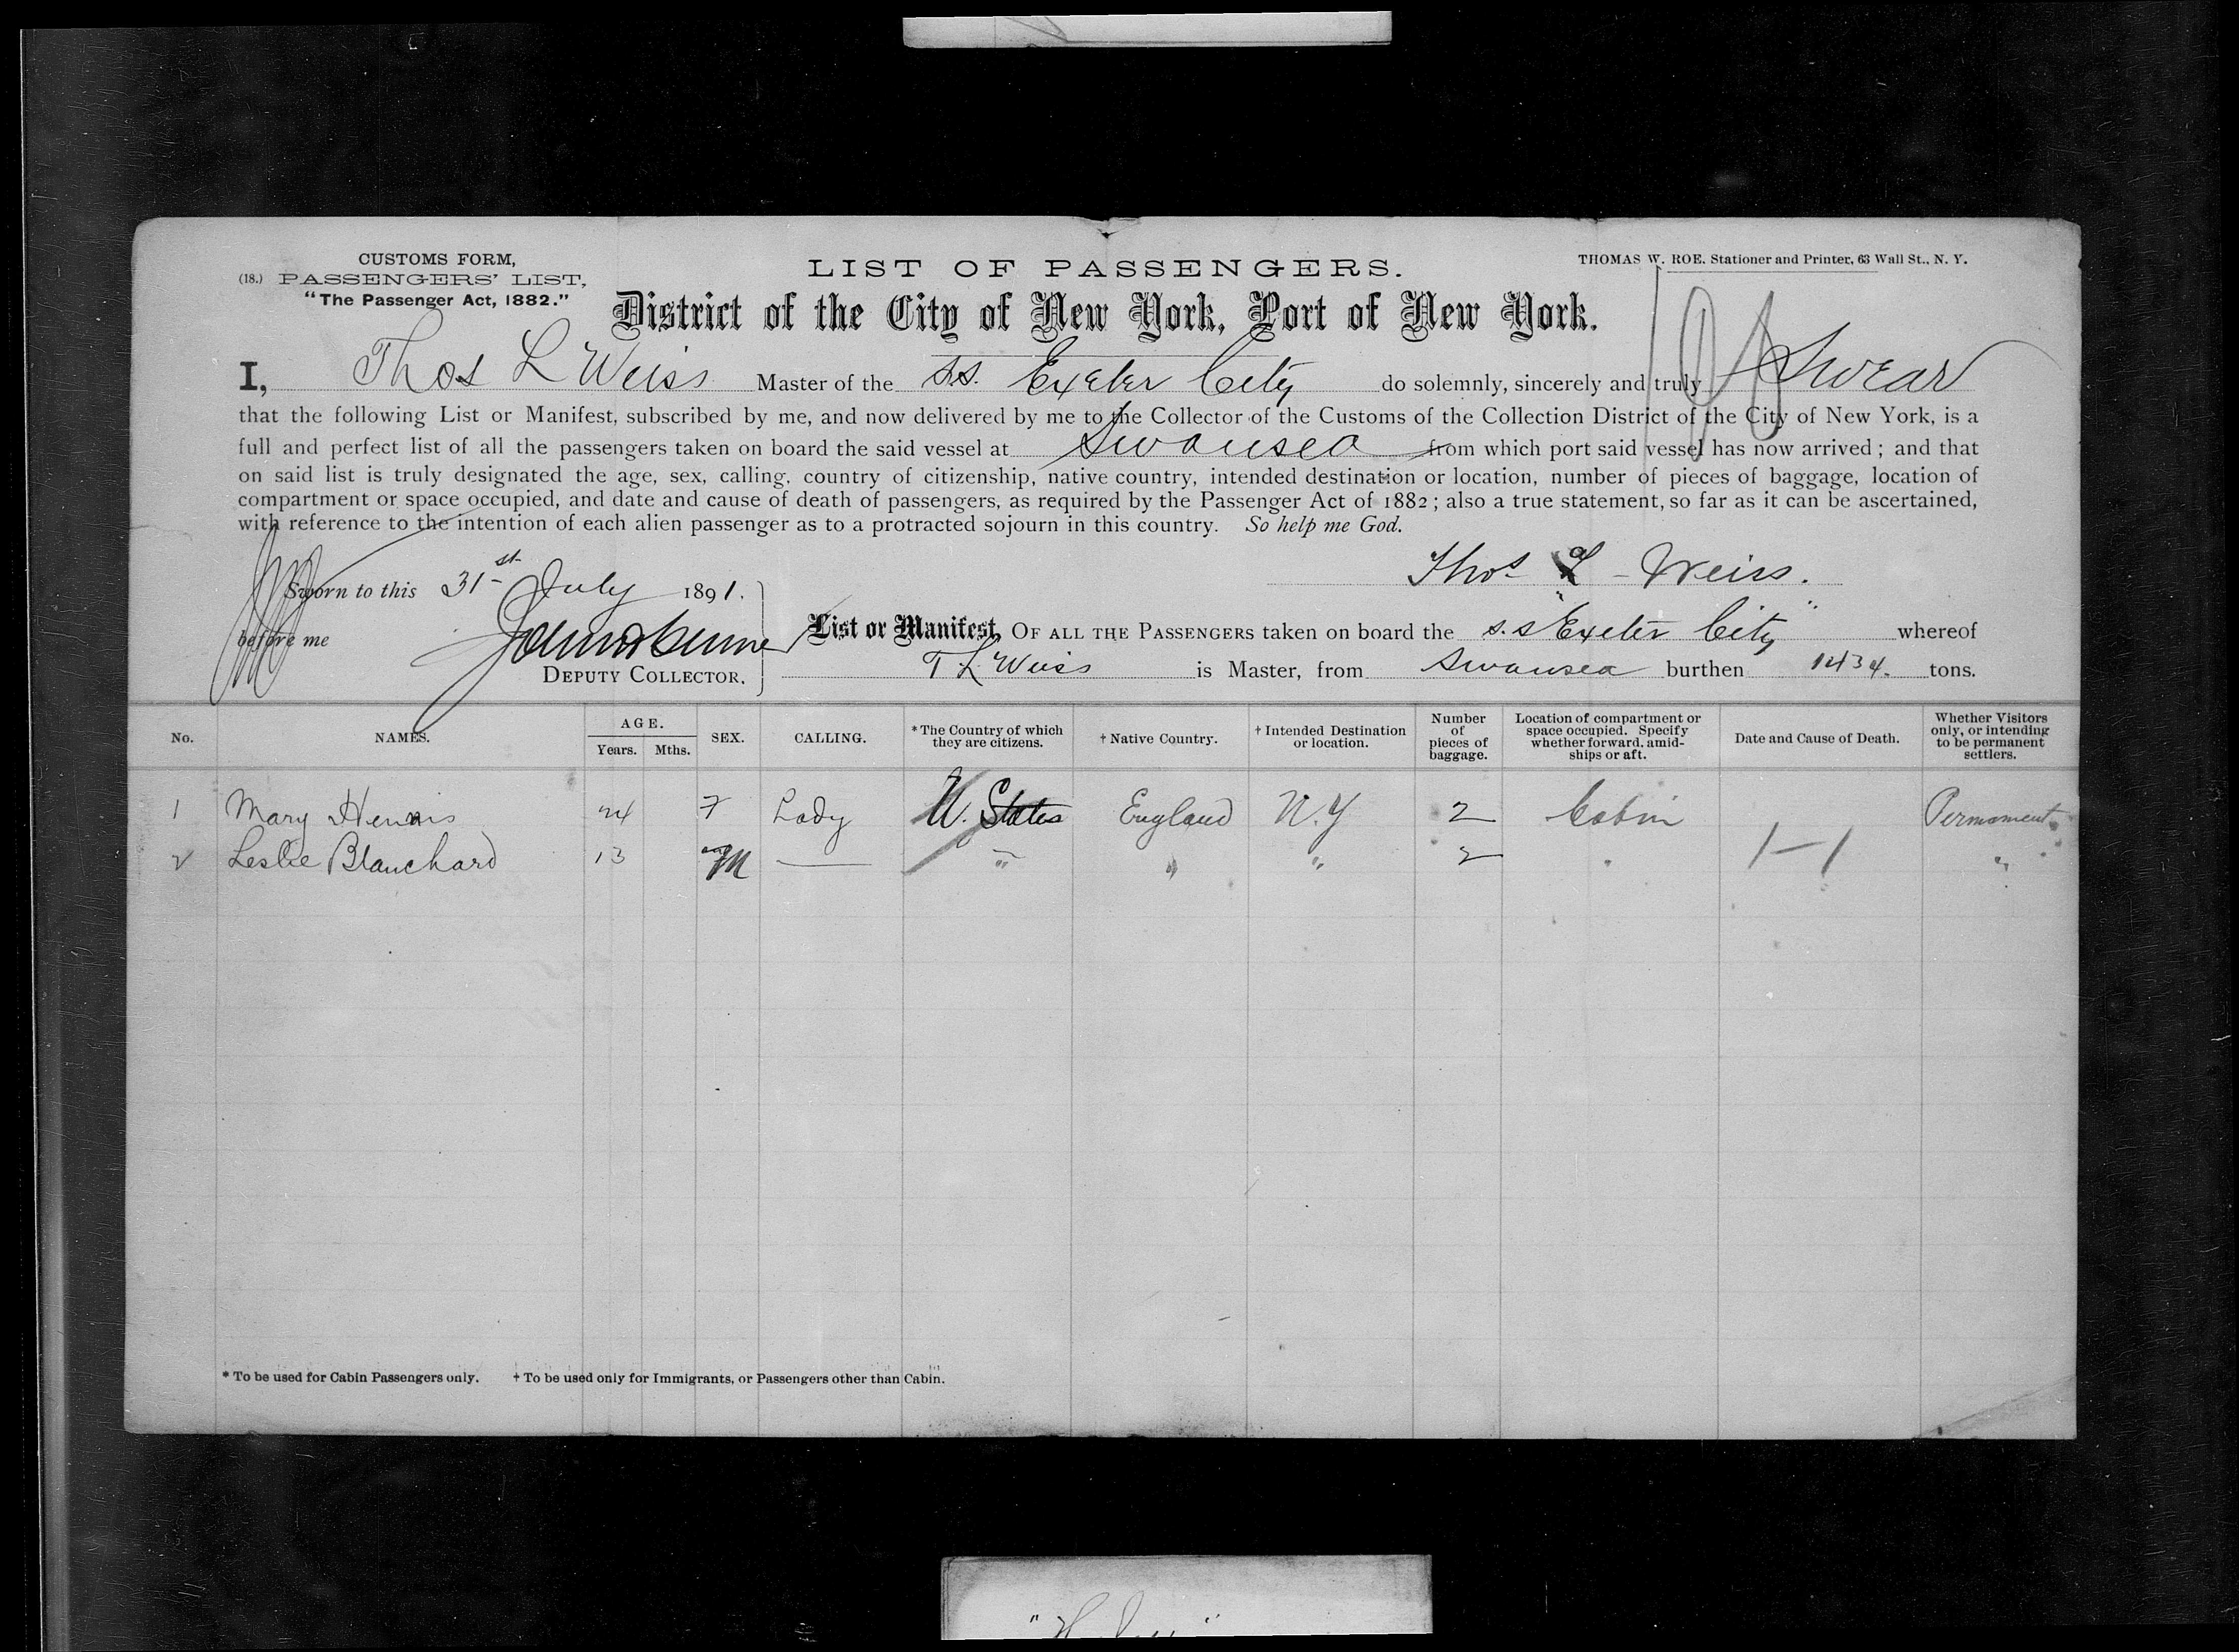 CUSTOMS FORM,
(18.) PASSENGERS' LIST,
"The Passenger Act, 1882."
LIST OF PASSENGERS.
THOMAS W. ROE, Stationer and Printer, 63 Wall St., N. Y.
District of the City of New York, Port of New York.
I, Thos L Weiss Master of the S.S. Exeter City do solemnly, sincerely and truly Swear
that the following List or Manifest, subscribed by me, and now delivered by me to the Collector of the Customs of the Collection District of the City of New York, is a
full and perfect list of all the passengers taken on board the said vessel at Swansea from which port said vessel has now arrived; and that
on said list is truly designated the age, sex, calling, country of citizenship, native country, intended destination or location, number of pieces of baggage, location of
compartment or space occupied, and date and cause of death of passengers, as required by the Passenger Act of 1882; also a true statement, so far as it can be ascertained,
with reference to the intention of each alien passenger as to a protracted sojourn in this country. So help me God.
Thos L - Weiss.
Sworn to this 31st July 1891.
before me
DEPUTY COLLECTOR.
List or Manifest, OF ALL THE PASSENGERS taken on board the s.s "Exeter City" whereof
T L Weiss is Master, from Swansea burthen 1434. tons.
No. NAMES. AGE. Years. Mths. SEX. CALLING. *The Country of which they are citizens. †Native Country. †Intended Destination or location. Number of pieces of baggage. Location of compartment or space occupied. Specify whether forward, amidships or aft. Date and Cause of Death. Whether Visitors only, or intending to be permanent settlers.
1 Mary 24 F Lady U. States England N.Y 2 Cabin Permanent
2 Leslie Blanchard 13 M — " " " 2 " 1-1 "
* To be used for Cabin Passengers only. † To be used only for Immigrants, or Passengers other than Cabin.